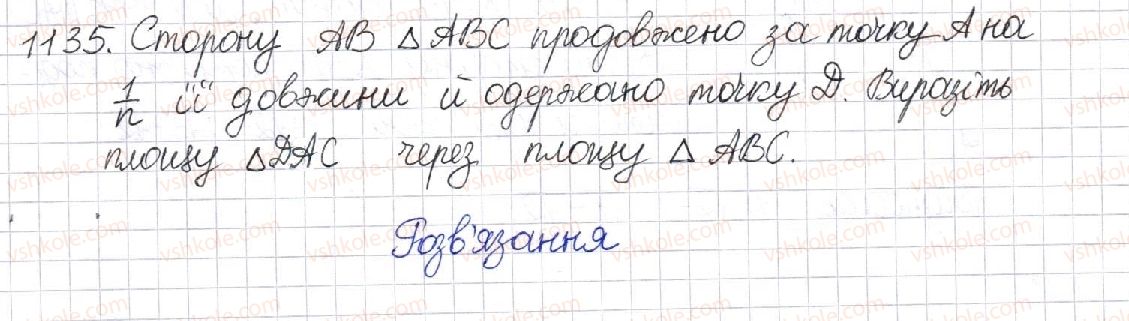 1135. Сторону AB △ABC продовжено за точку A на
1/n її довжини й одержано точку D. Виразіть
площу △DAC через площу △ ABC.
Розв'язання